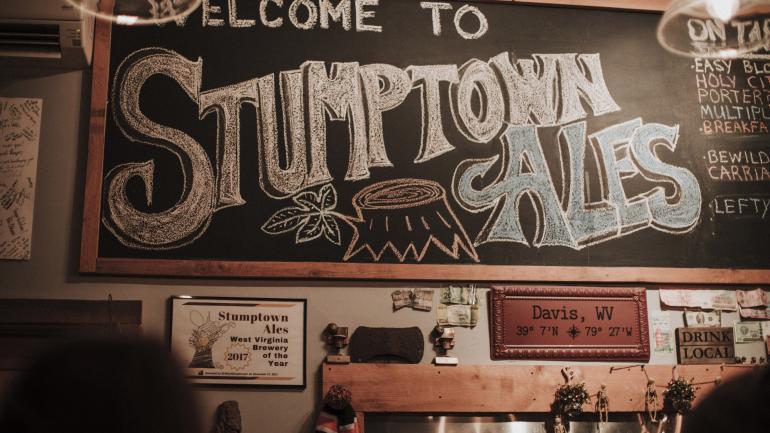 WELCOME TO
STUMPTOWN
ALES
ON TA
EASY BLO
HOLY C
PORTER
MULTIPL
BREAKFA
BEWILD
CARRIA
LEFTY
Stumptown
Ales
West Virginia
Brewery
of the
Year
2017
Davis, WV
39° 7'N 79° 27'W
DRINK
LOCAL